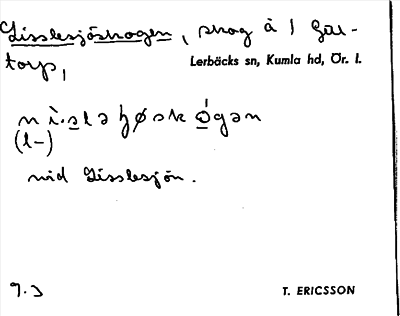 Lisslesjöskogen, skog å 1 Gål-
torp,
Lerbäcks sn, Kumla hd, Ör. l.
nì·slaʒøskógən
(l-)
vid Lisslesjön.
9.3
T. ERICSSON